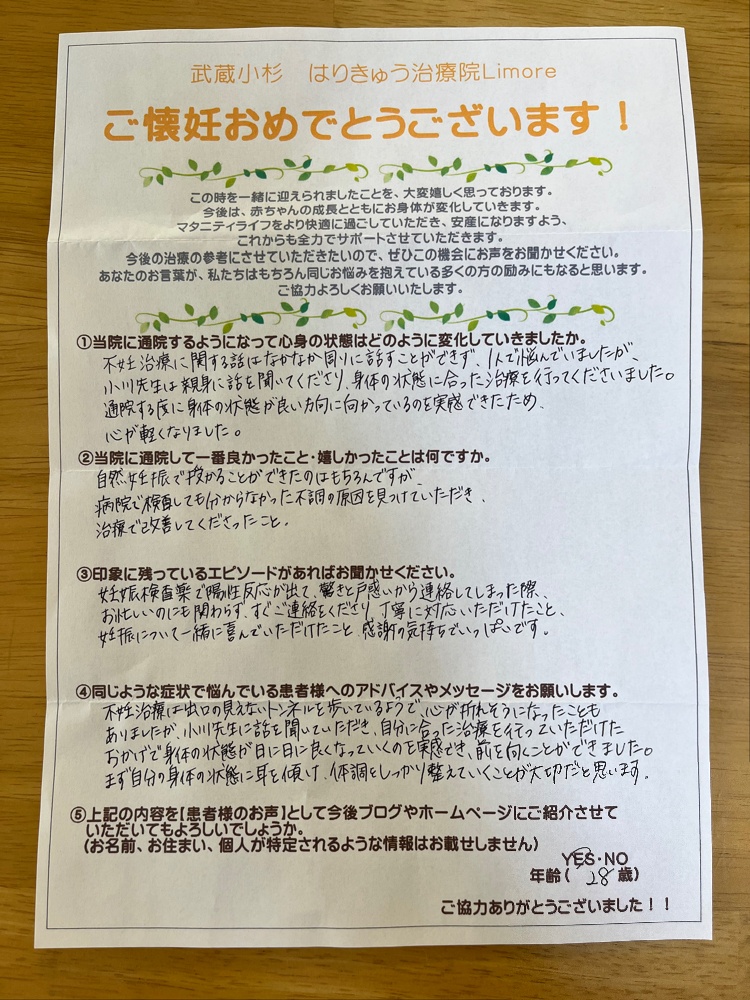 武蔵小杉　はりきゅう治療院Limore
ご懐妊おめでとうございます！
この時を一緒に迎えられましたことを、大変嬉しく思っております。
今後は、赤ちゃんの成長とともにお身体が変化していきます。
マタニティライフをより快適に過ごしていただき、安産になりますよう、
これからも全力でサポートさせていただきます。
今後の治療の参考にさせていただきたいので、ぜひこの機会にお声をお聞かせください。
あなたのお言葉が、私たちはもちろん同じお悩みを抱えている多くの方の励みにもなると思います。
ご協力よろしくお願いいたします。
①当院に通院するようになって心身の状態はどのように変化していきましたか。
不妊治療に関する話はなかなか周りに話すことができず、1人で悩んでいましたが、
小川先生は親身に話を聞いてくださり、身体の状態に合った治療を行ってくださいました。
通院する度に身体の状態が良い方向に向かっているのを実感できたため、
心が軽くなりました。
②当院に通院して一番良かったこと・嬉しかったことは何ですか。
自然妊娠で授かることができたのはもちろんですが、
病院で検査しても分からなかった不調の原因を見つけていただき、
治療で改善してくださったこと。
③印象に残っているエピソードがあればお聞かせください。
妊娠検査薬で陽性反応が出て、驚きと戸惑いから連絡してしまった際、
お忙しいのにも関わらず、すぐご連絡をくださり、丁寧に対応いただけたこと、
妊娠について一緒に喜んでいただけたこと、感謝の気持ちでいっぱいです。
④同じような症状で悩んでいる患者様へのアドバイスやメッセージをお願いします。
不妊治療は出口の見えないトンネルを歩いているようで、心が折れそうになったことも
ありましたが、小川先生に話を聞いていただき、自分に合った治療を行っていただけた
おかげで身体の状態が日に日に良くなっていくのを実感でき、前を向くことができました。
まず自分の身体の状態に耳を傾け、体調をしっかり整えていくことが大切だと思います。
⑤上記の内容を【患者様のお声】として今後ブログやホームページにご紹介させて
いただいてもよろしいでしょうか。
(お名前、お住まい、個人が特定されるような情報はお載せしません)
YES・NO
年齢( 28 歳)
ご協力ありがとうございました！！